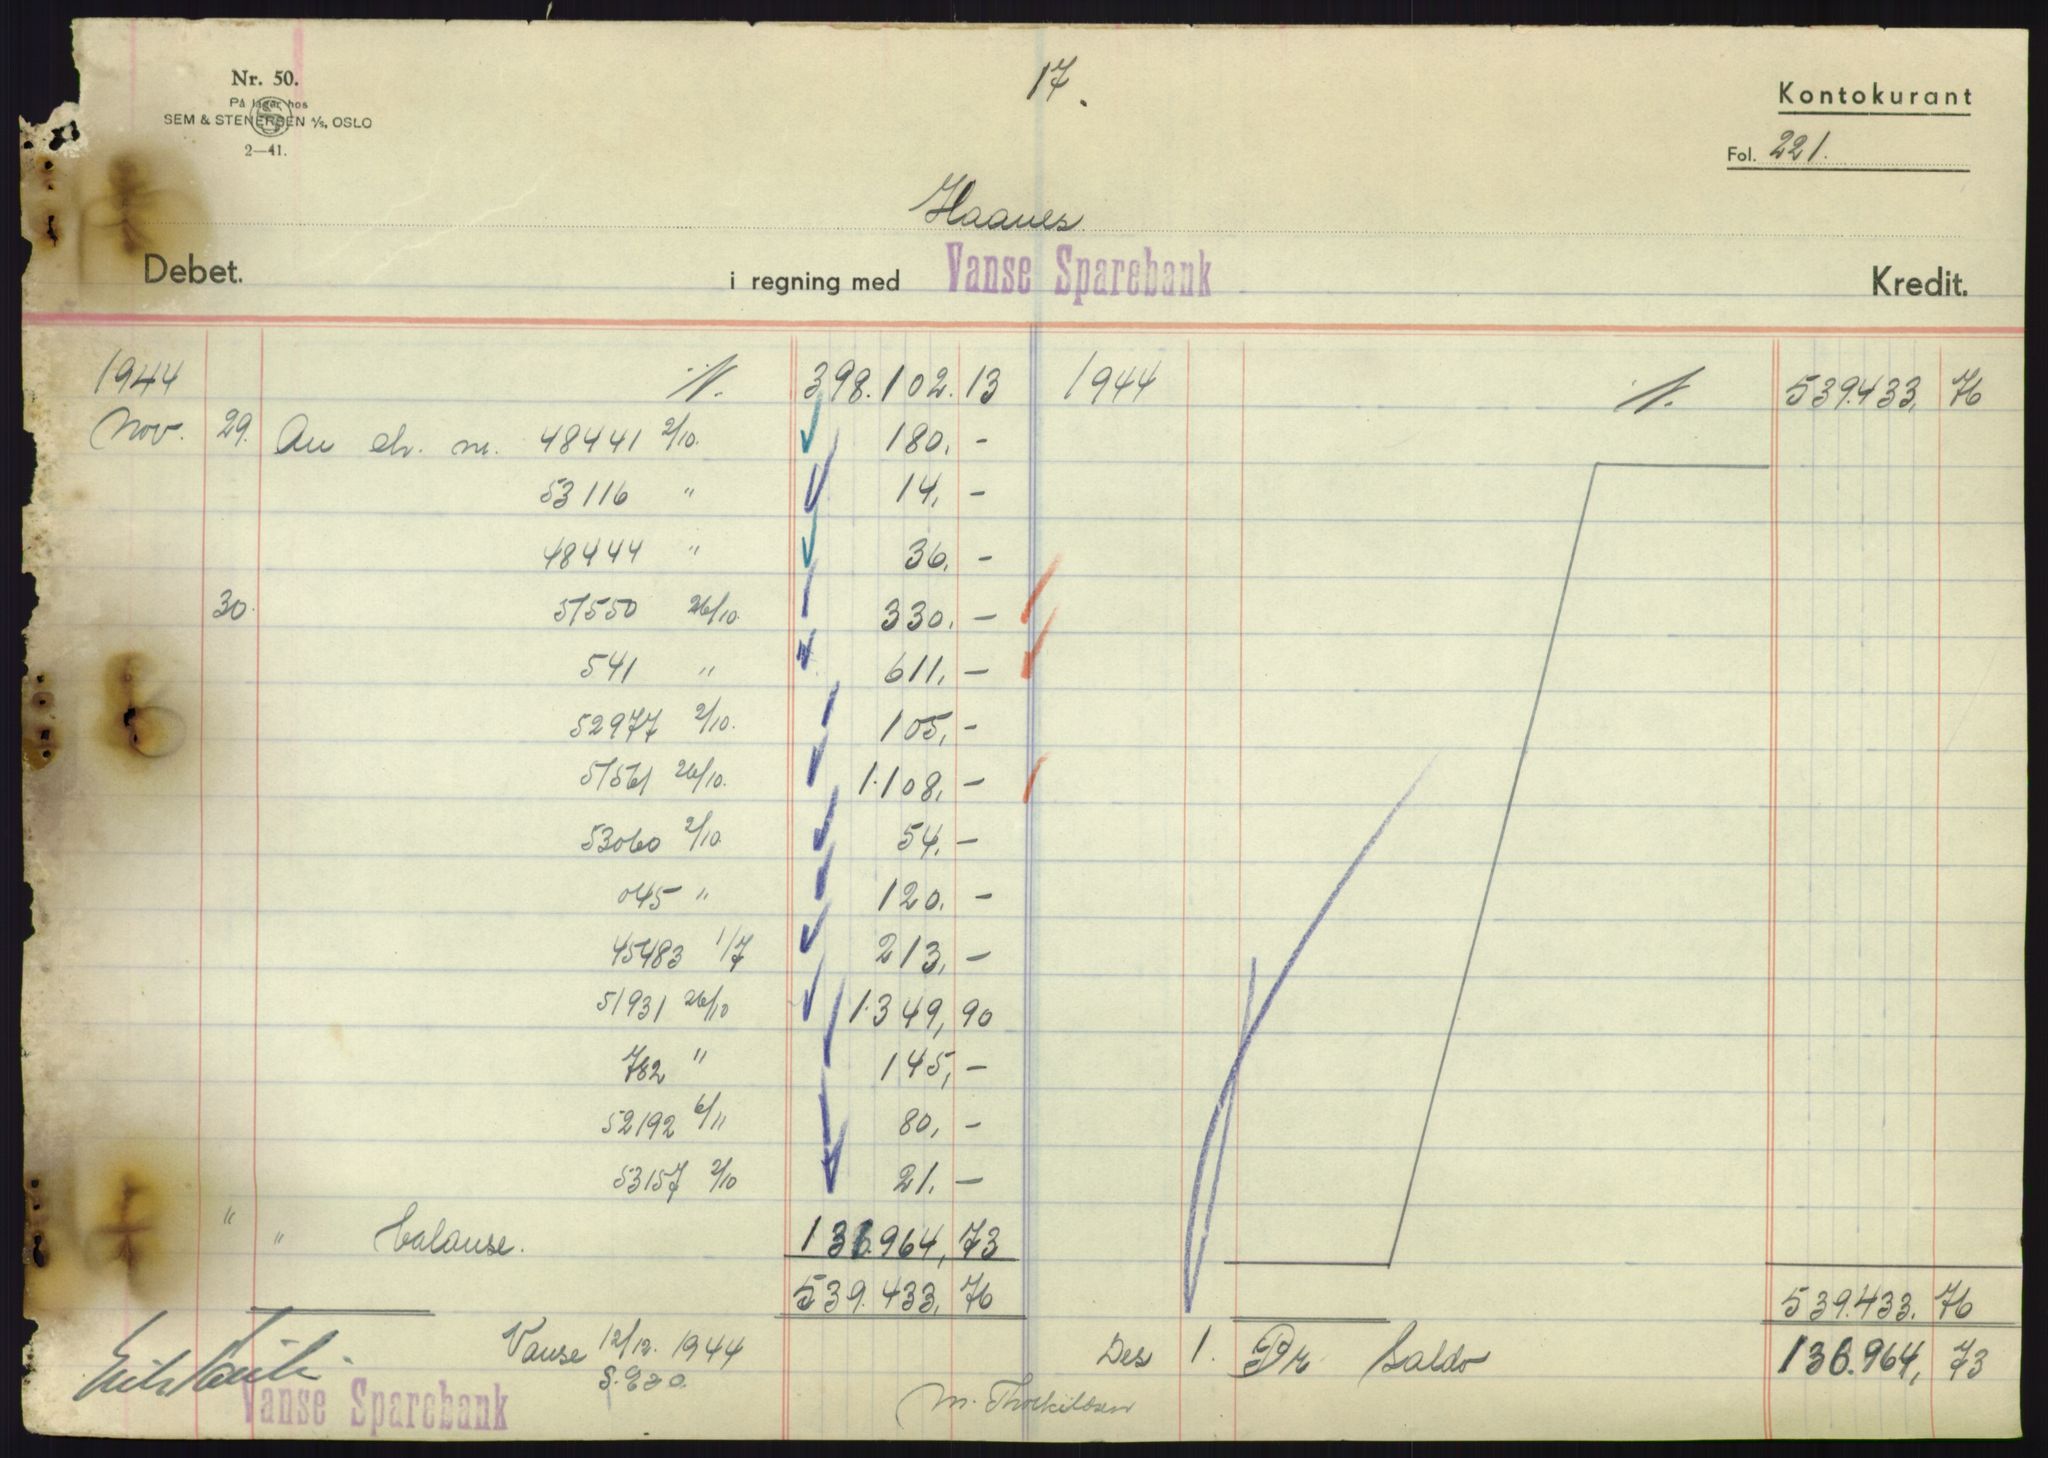 Nr. 50.
På lager hos
SEM & STENERSEN A/S, OSLO
2—41.
17.
Kontokurant
Fol. 221.
Haanes
Debet. i regning med Vanse Sparebank Kredit.
1944 398.102.13 1944 539.433, 76
Nov. 29. An ch. nr. 48441 2/10. 180, -
53116 " 14, -
48444 " 36, -
30. 51550 26/10. 330, -
541 " 611, -
52977 2/10. 105, -
51561 26/10. 1.108, -
53060 2/10. 54, -
045 " 120, -
45483 1/7 213, -
51931 26/10 1.349,90
782 " 145, -
52192 6/11 80, -
53157 2/10 21, -
" " balanse. 136.964,73
539.433,76 539.433.76
Vanse 12/12. 1944 Des 1. Pr Saldo 136.964,73
Vanse Sparebank M. Thorkildsen